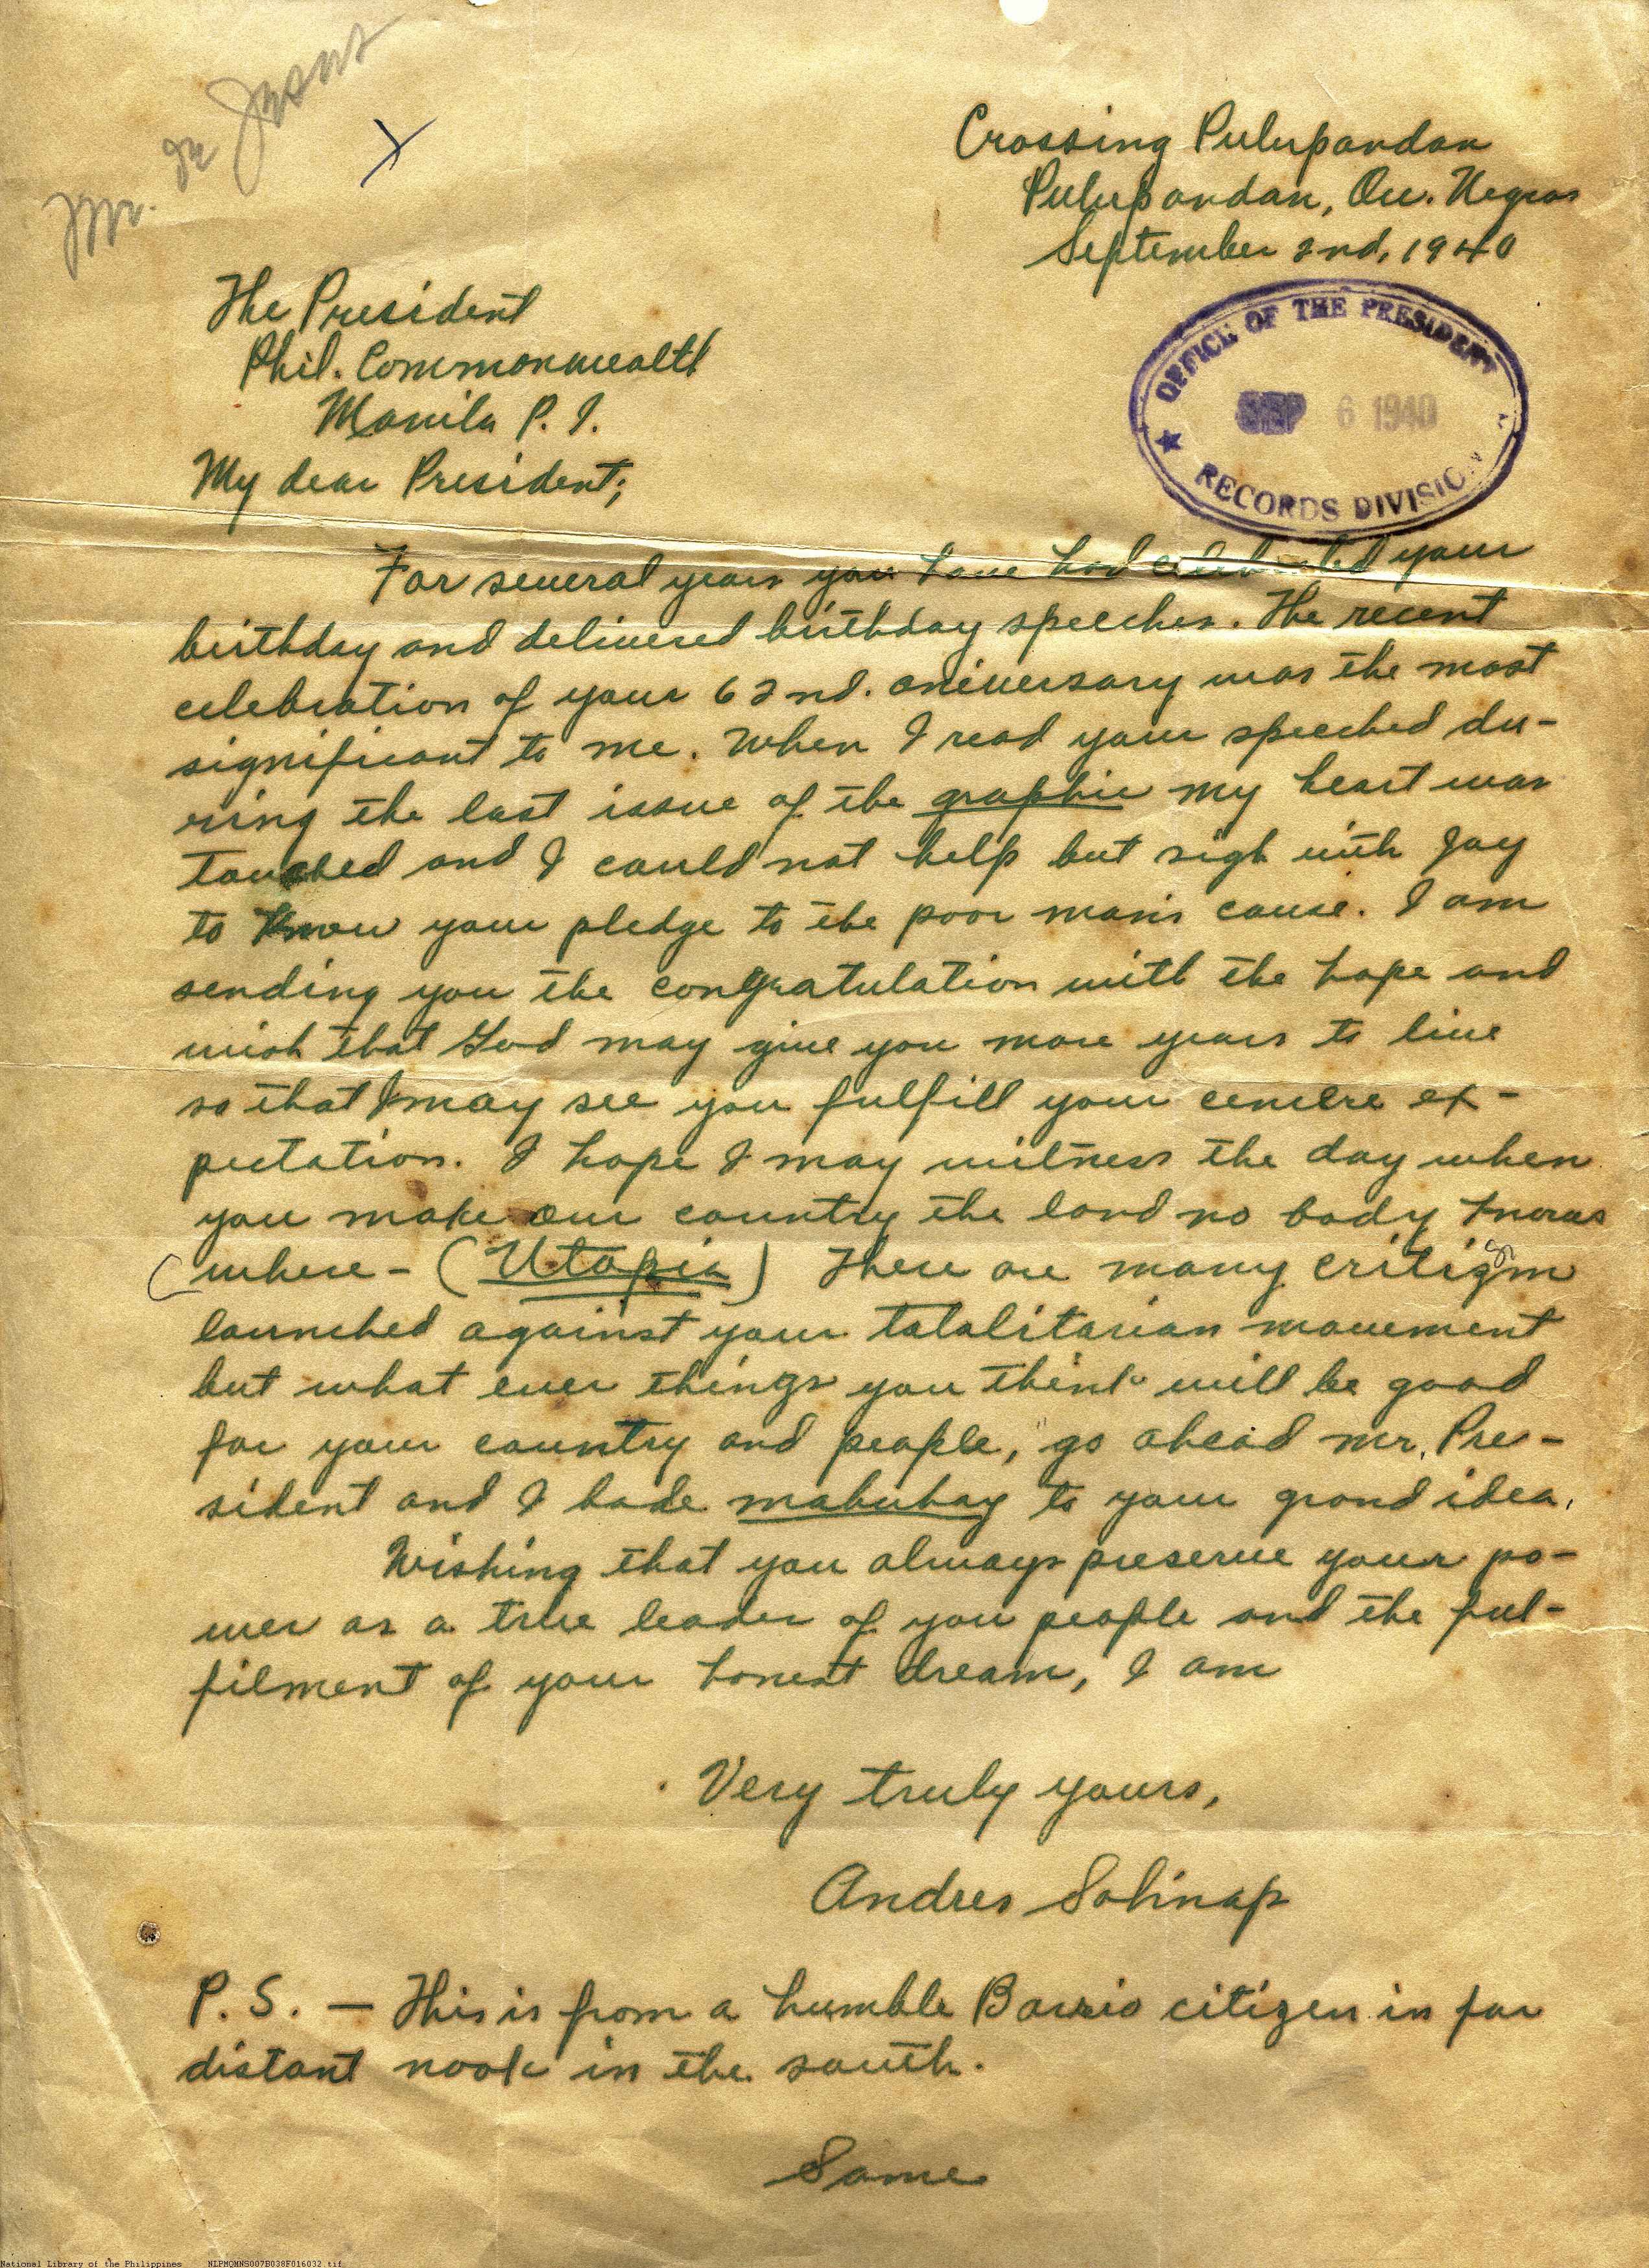 Mr. de Jesus
X
Crossing Pulupandan
Pulupandan, Occ. Negros
September 2nd, 1940
OFFICE OF THE PRESIDENT
SEP 6 1940
RECORDS DIVISION
The President
Phil. Commonwealth
Manila P. I.
My dear President;
For several years you have had celebrated your
birthday and delivered birthday speeches. The recent
celebration of your 62nd. aniversary was the most
significant to me. When I read your speeched du-
ring the last issue of the graphic my heart was
touched and I could not help but sigh with joy
to know your pledge to the poor man's cause. I am
sending you the congratulation with the hope and
wish that God may give you more years to live
so that I may see you fulfill your cencere ex-
pectation. I hope I may witness the day when
you make our country the land no body knows
where - (Utopia) There are many critism
launched against your totalitarian movement
but what ever things you think will be good
for your country and people, go ahead mr. Pre-
sident and I bade mabuhay to your grand idea.
Wishing that you always preserve your po-
wer as a true leader of you people and the ful-
filment of your honest dream, I am
Very truly yours,
Andres Solinap
P. S. — This is from a humble Barrio citizen in far
distant nook in the south.
Same
National Library of the Philippines NLPMQMNS007B038F016032.tif